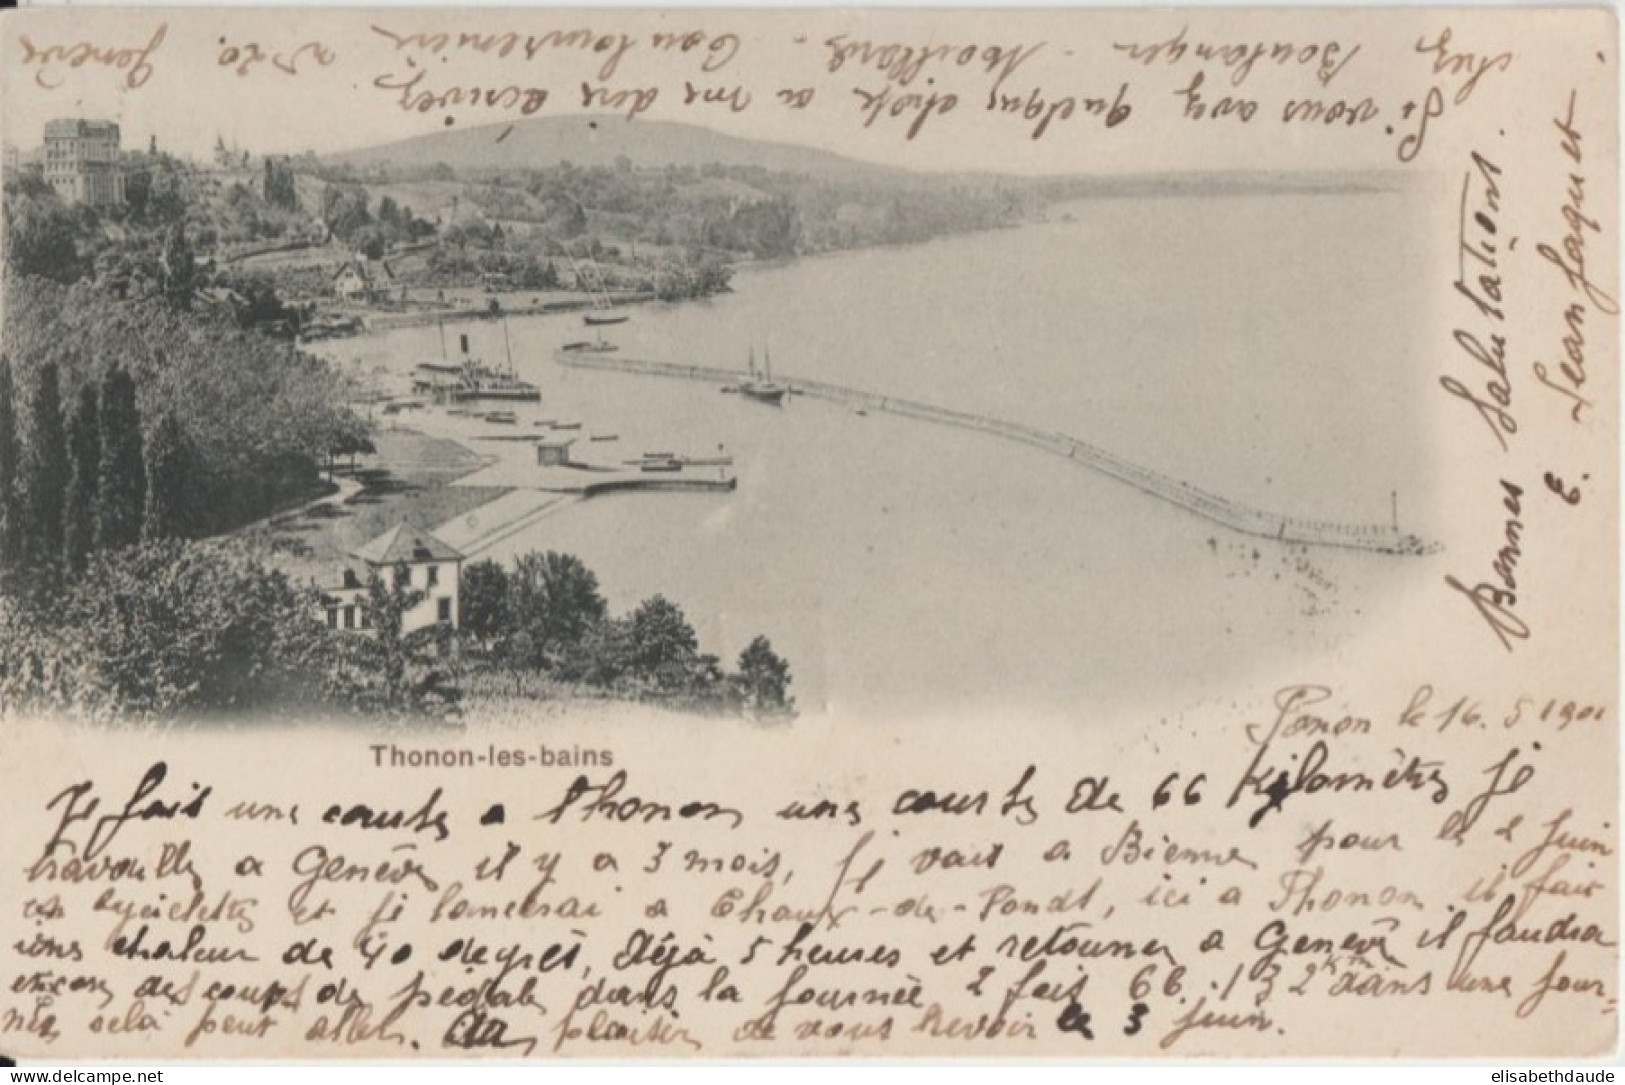 Si vous avez quelque chose a me dire écrivez
chez Boulanger - Maillard - Coulouvrenière n° 20. Genève
Bonnes Salutations.
E. Jeanjaquet
Thonon-les-bains
Tonon le 16. 5 1901
Je fais une course a Thonon une course de 66 Kilomètres je
travaille a Genève il y a 3 mois, je vais a Bienne pour le 2 Juin
en byciclette et je lancerai a Chaux-de-Fondt, ici a Thonon il fait
une chaleur de 40 degrès, déjà 5 heures et retourner a Genève il faudra
encore des coups de pédale dans la journée 2 fois 66. 132 km dans une jour-
née cela peut aller. Au plaisir de vous revoir le 3 juin.
www.delcampe.net
elisabethdaude